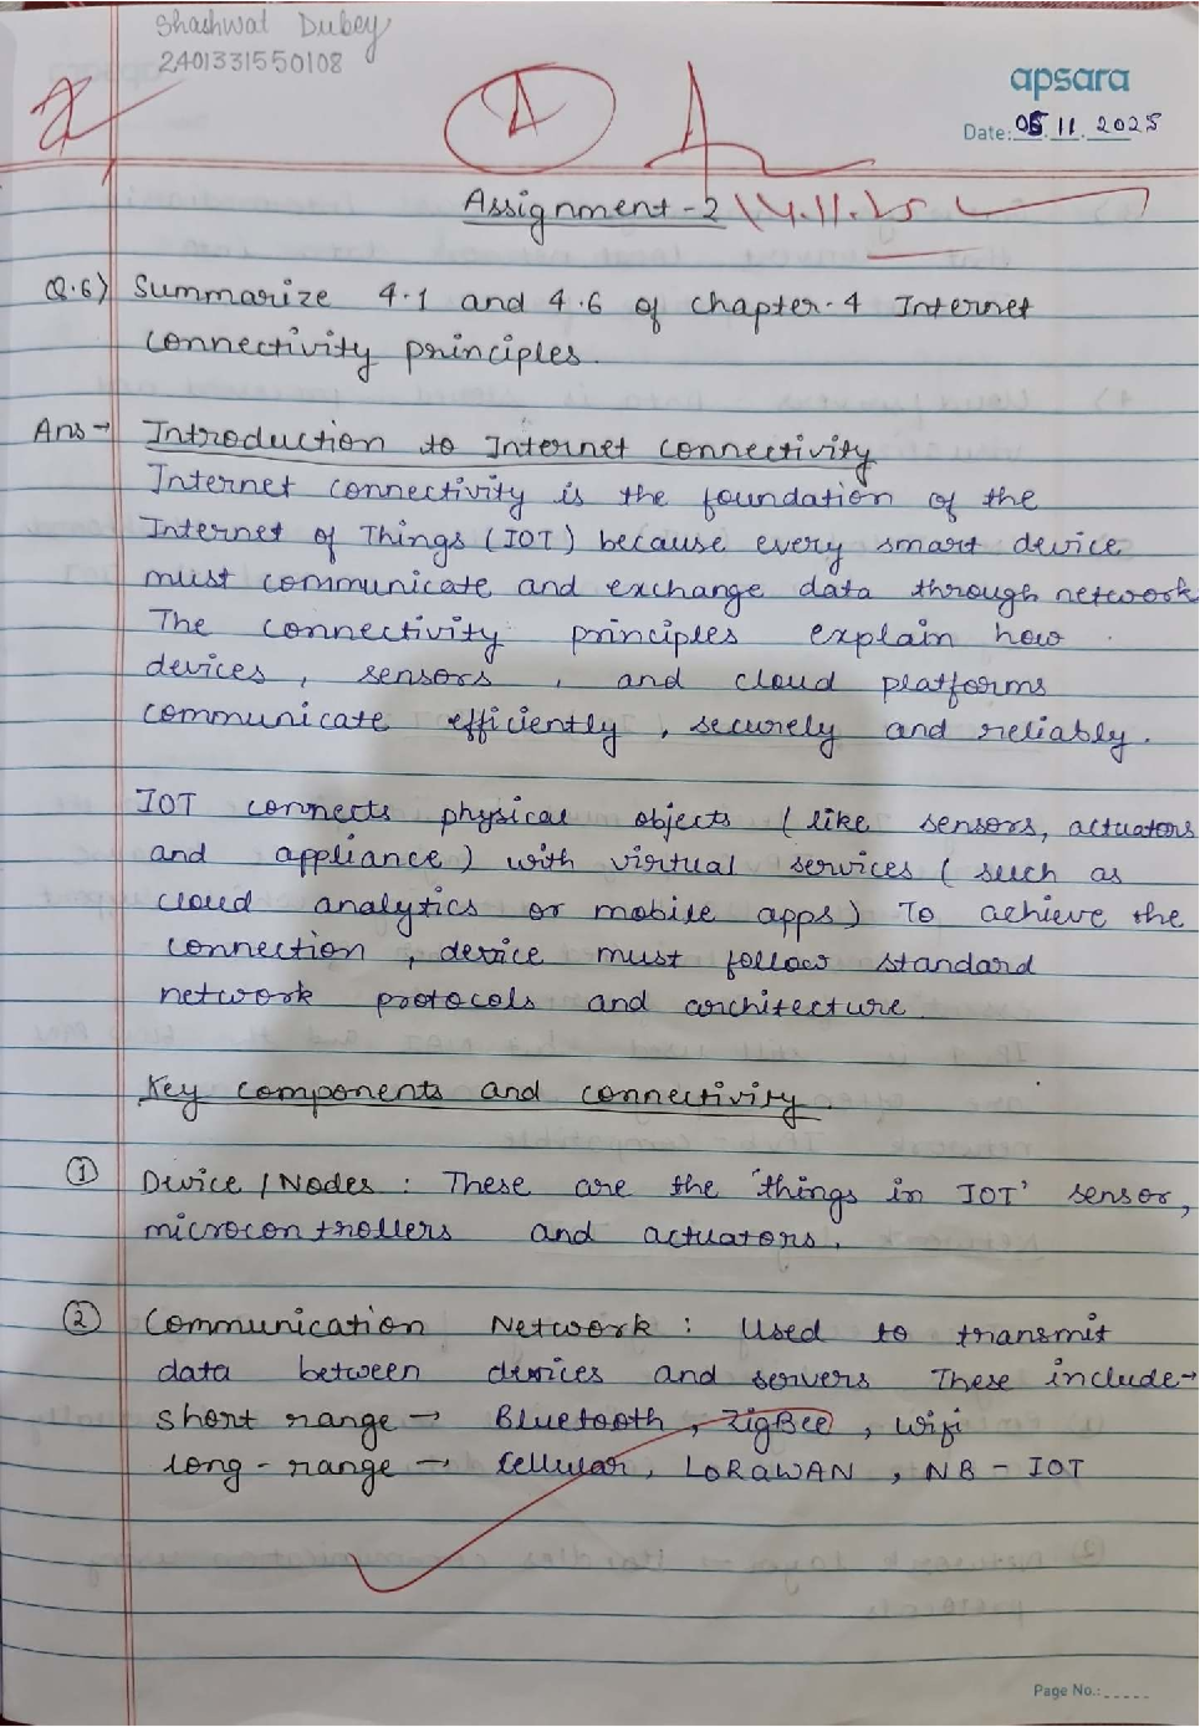 Shashwat Dubey
2401331550108
apsara
Date: 05.11.2025
A
Assignment-2 14.11.25
Q.6) Summarize 4.1 and 4.6 of chapter-4 Internet
connectivity principles.
Ans→ Introduction to Internet connectivity
Internet connectivity is the foundation of the
Internet of Things (IOT) because every smart device
must communicate and exchange data through network
The connectivity principles explain how
devices, sensors, and cloud platforms
communicate efficiently, securely and reliably.
IOT connects physical objects (like sensors, actuators
and appliance) with virtual services (such as
cloud analytics or mobile apps) To achieve the
connection, device must follow standard
network protocols and architecture.
Key components and connectivity.
① Device/Nodes: These are the 'things in IOT' sensor,
microcontrollers and actuators.
② Communication Network: Used to transmit
data between devices and servers These include→
short range → Bluetooth, ZigBee, Wifi
long-range → Cellular, LoRAWAN, NB-IOT
Page No.: